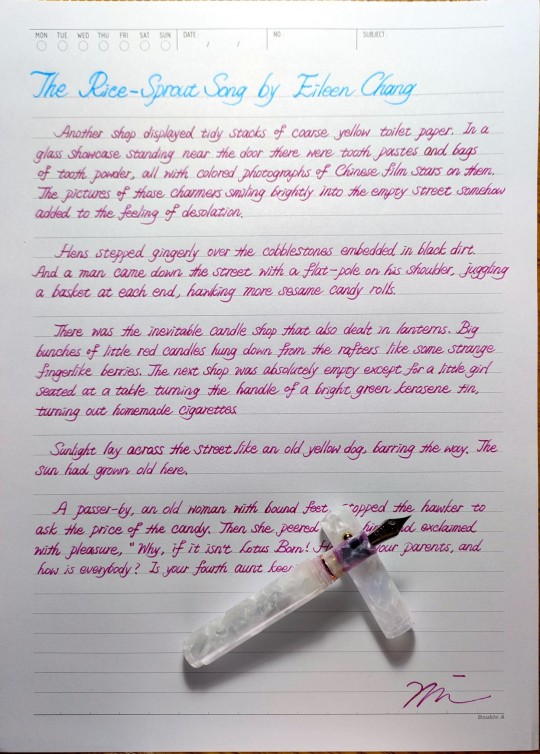 MON TUE WED THU FRI SAT SUN DATE / / NO. SUBJECT.
The Rice-Sprout Song by Eileen Chang
Another shop displayed tidy stacks of coarse yellow toilet paper. In a
glass showcase standing near the door there were tooth pastes and bags
of tooth powder, all with colored photographs of Chinese film stars on them.
The pictures of those charmers smiling brightly into the empty street somehow
added to the feeling of desolation.
Hens stepped gingerly over the cobblestones embedded in black dirt.
And a man came down the street with a flat-pole on his shoulder, juggling
a basket at each end, hawking more sesame candy rolls.
There was the inevitable candle shop that also dealt in lanterns. Big
bunches of little red candles hung down from the rafters like some strange
fingerlike berries. The next shop was absolutely empty except for a little girl
seated at a table turning the handle of a bright green kerosene tin,
turning out homemade cigarettes.
Sunlight lay across the street like an old yellow dog, barring the way. The
sun had grown old here.
A passer-by, an old woman with bound feet, stopped the hawker to
ask the price of the candy. Then she peered exclaimed
with pleasure, "Why, if it isn't Lotus Born! your parents, and
how is everybody? Is your fourth aunt
Double A